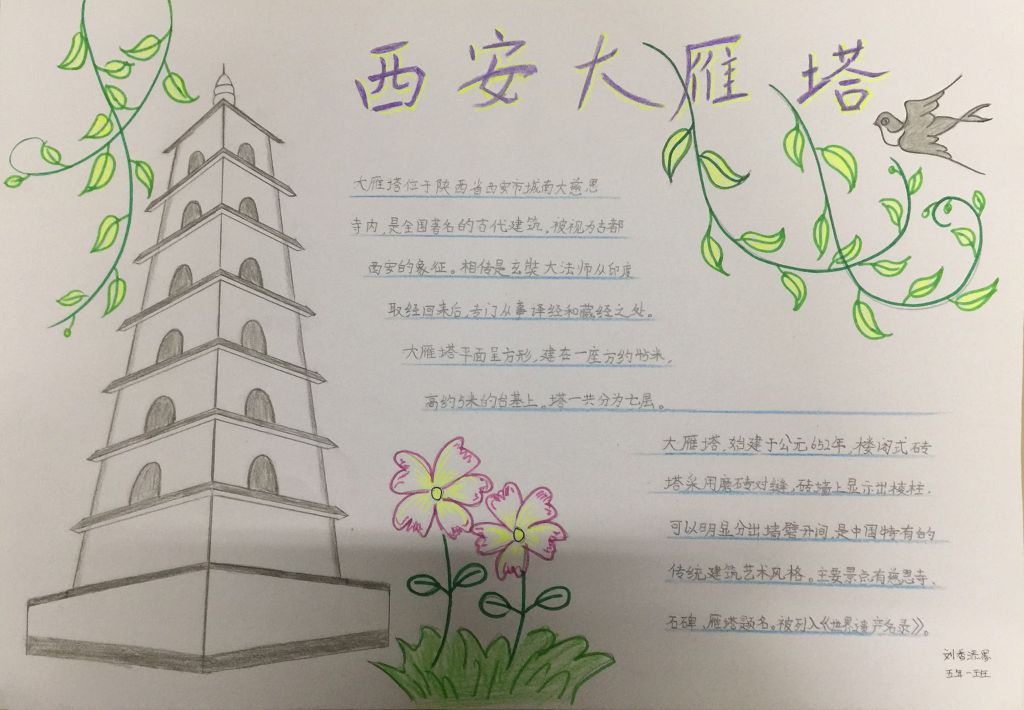 西安大雁塔
大雁塔位于陕西省西安市城南大慈恩
寺内，是全国著名的古代建筑，被视为古都
西安的象征。相传是玄奘大法师从印度
取经回来后，专门从事译经和藏经之处。
大雁塔平面呈方形，建在一座方约45米，
高约5米的台基上。塔一共分为七层。
大雁塔，始建于公元652年，楼阁式砖
塔采用磨砖对缝，砖墙上显示出棱柱，
可以明显分出墙壁开间，是中国特有的
传统建筑艺术风格。主要景点有慈恩寺、
石碑、雁塔题名。被列入《世界遗产名录》。
刘香
五年一班